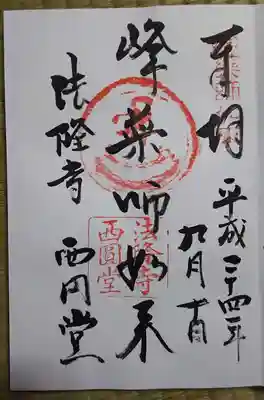 奉拝
平成二十四年
九月
峰薬師如来
法隆寺
西圓堂
法隆寺 西円堂